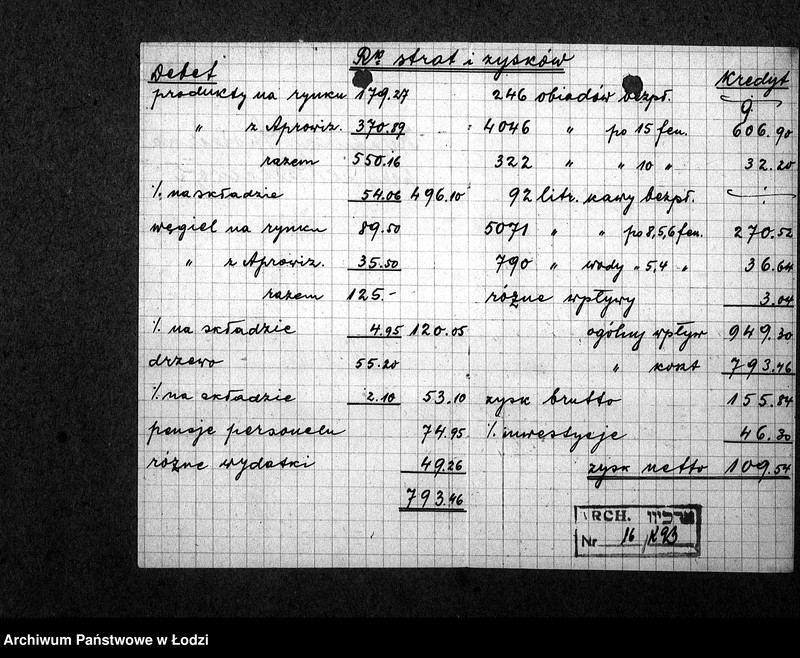 Rk strat i zysków
Debet
Kredyt
produkty na rynku 179.27
" z Aprowiz. 370.89
razem 550.16
% na składzie 54.06 496.10
węgiel na rynku 89.50
" z Aprowiz. 35.50
razem 125.-
% na składzie 4.95 120.05
drzewo 55.20
% na składzie 2.10 53.10
pensje personelu 74.95
różne wydatki 49.26
793.46
246 obiadów bezpł.
4046 " po 15 fen. 606.90
322 " " 10 " 32.20
92 litr. kawy bezpł.
5071 " " po 8,5,6 fen. 270.52
790 " wody " 5,4 " 36.64
różne wpływy 3.04
ogólny wpływ 949.30
" koszt 793.46
zysk brutto 155.84
% inwestycje 46.30
zysk netto 109.54
ARCH. ארכיון
Nr 16 /K93
Archiwum Państwowe w Łodzi